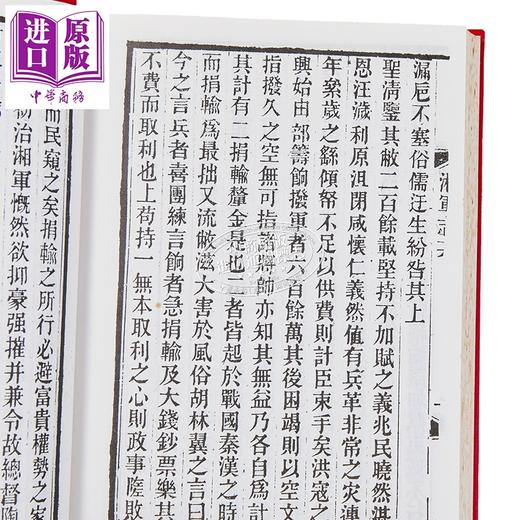 进口原版
中华商务
漏卮不塞俗儒迂生紛咎其上
聖淸鑒其敝二百餘載堅持不加賦之義兆民曉然湛
恩汪濊利原沮閉咸懷仁義然值有兵革非常之災連
年絫歲之餘傾帑不足以供費則計臣束手矣洪寇之
興始由部籌餉撥軍者六百餘萬其後困竭則以空文
指撥久之空無可指諸將帥亦知其無益乃各自爲計
其計有二捐輸釐金是也二者皆起於戰國秦漢之時
而捐輸爲最拙又流敝滋大害於風俗胡林翼之言曰
今之言兵者喜團練言餉者急捐輸及大錢鈔票樂其
不費而取利也上苟持一無本取利之心則政事隳敗
湘軍志十六
而民窺之矣捐輸之所行必避富貴權勢之家
物治湘軍慨然欲抑豪强摧并兼令故總督陶